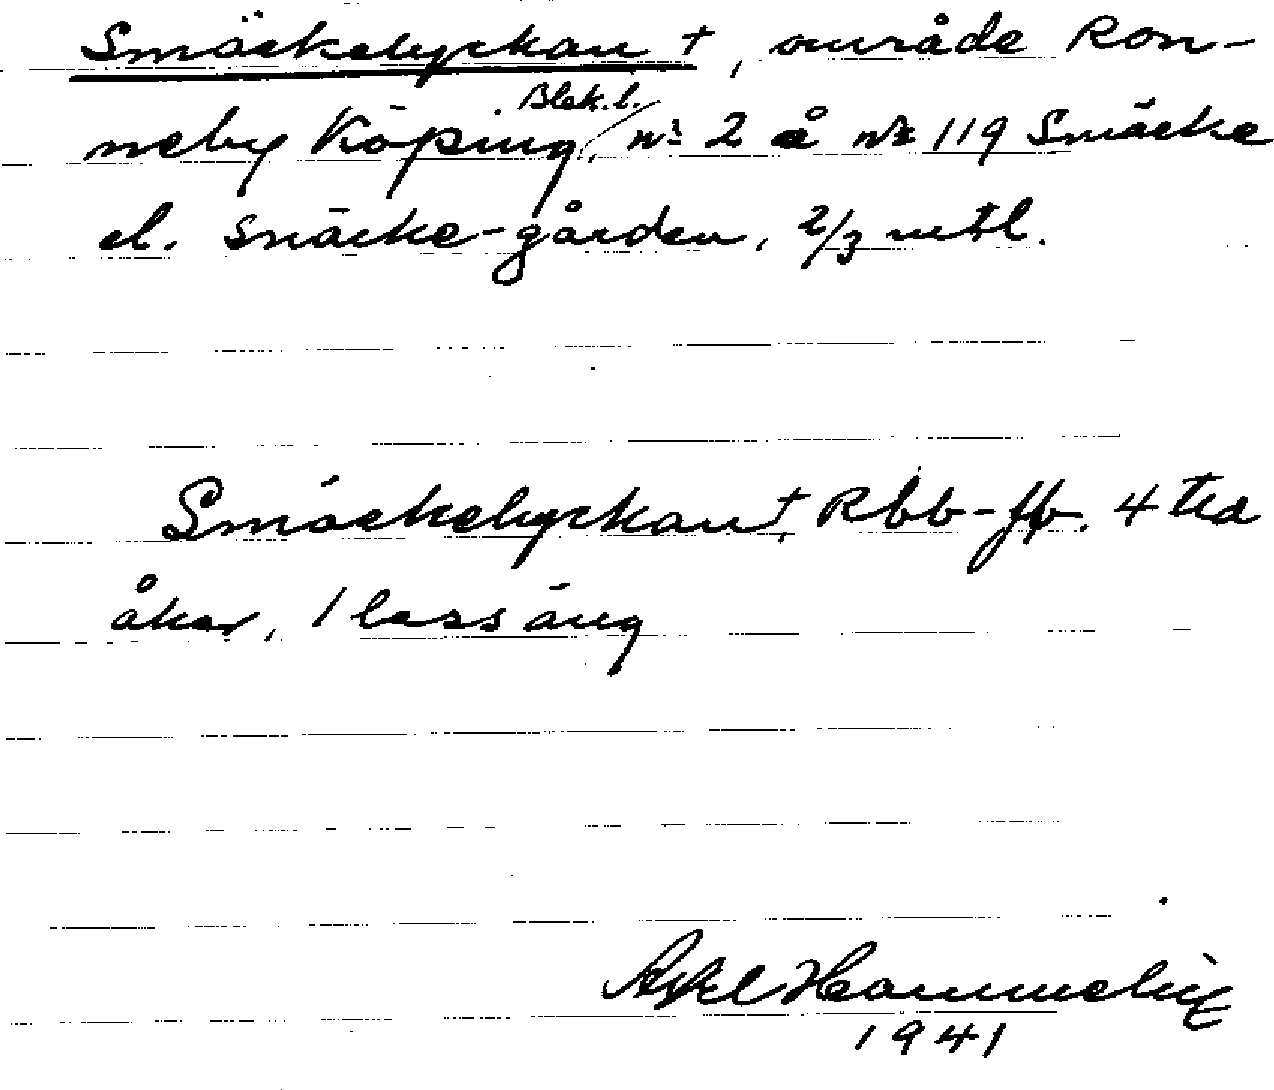 Smäckelyckan †, område Ron-
neby Köping, Blek. l. nr 2 å nr 119 Smäcke
el. Snäcke-gården, 2/3 mtl.
Smäckelyckan †, Rbb-fb. 4 tld
åker, 1 lass äng
Axel Hammelin
1941